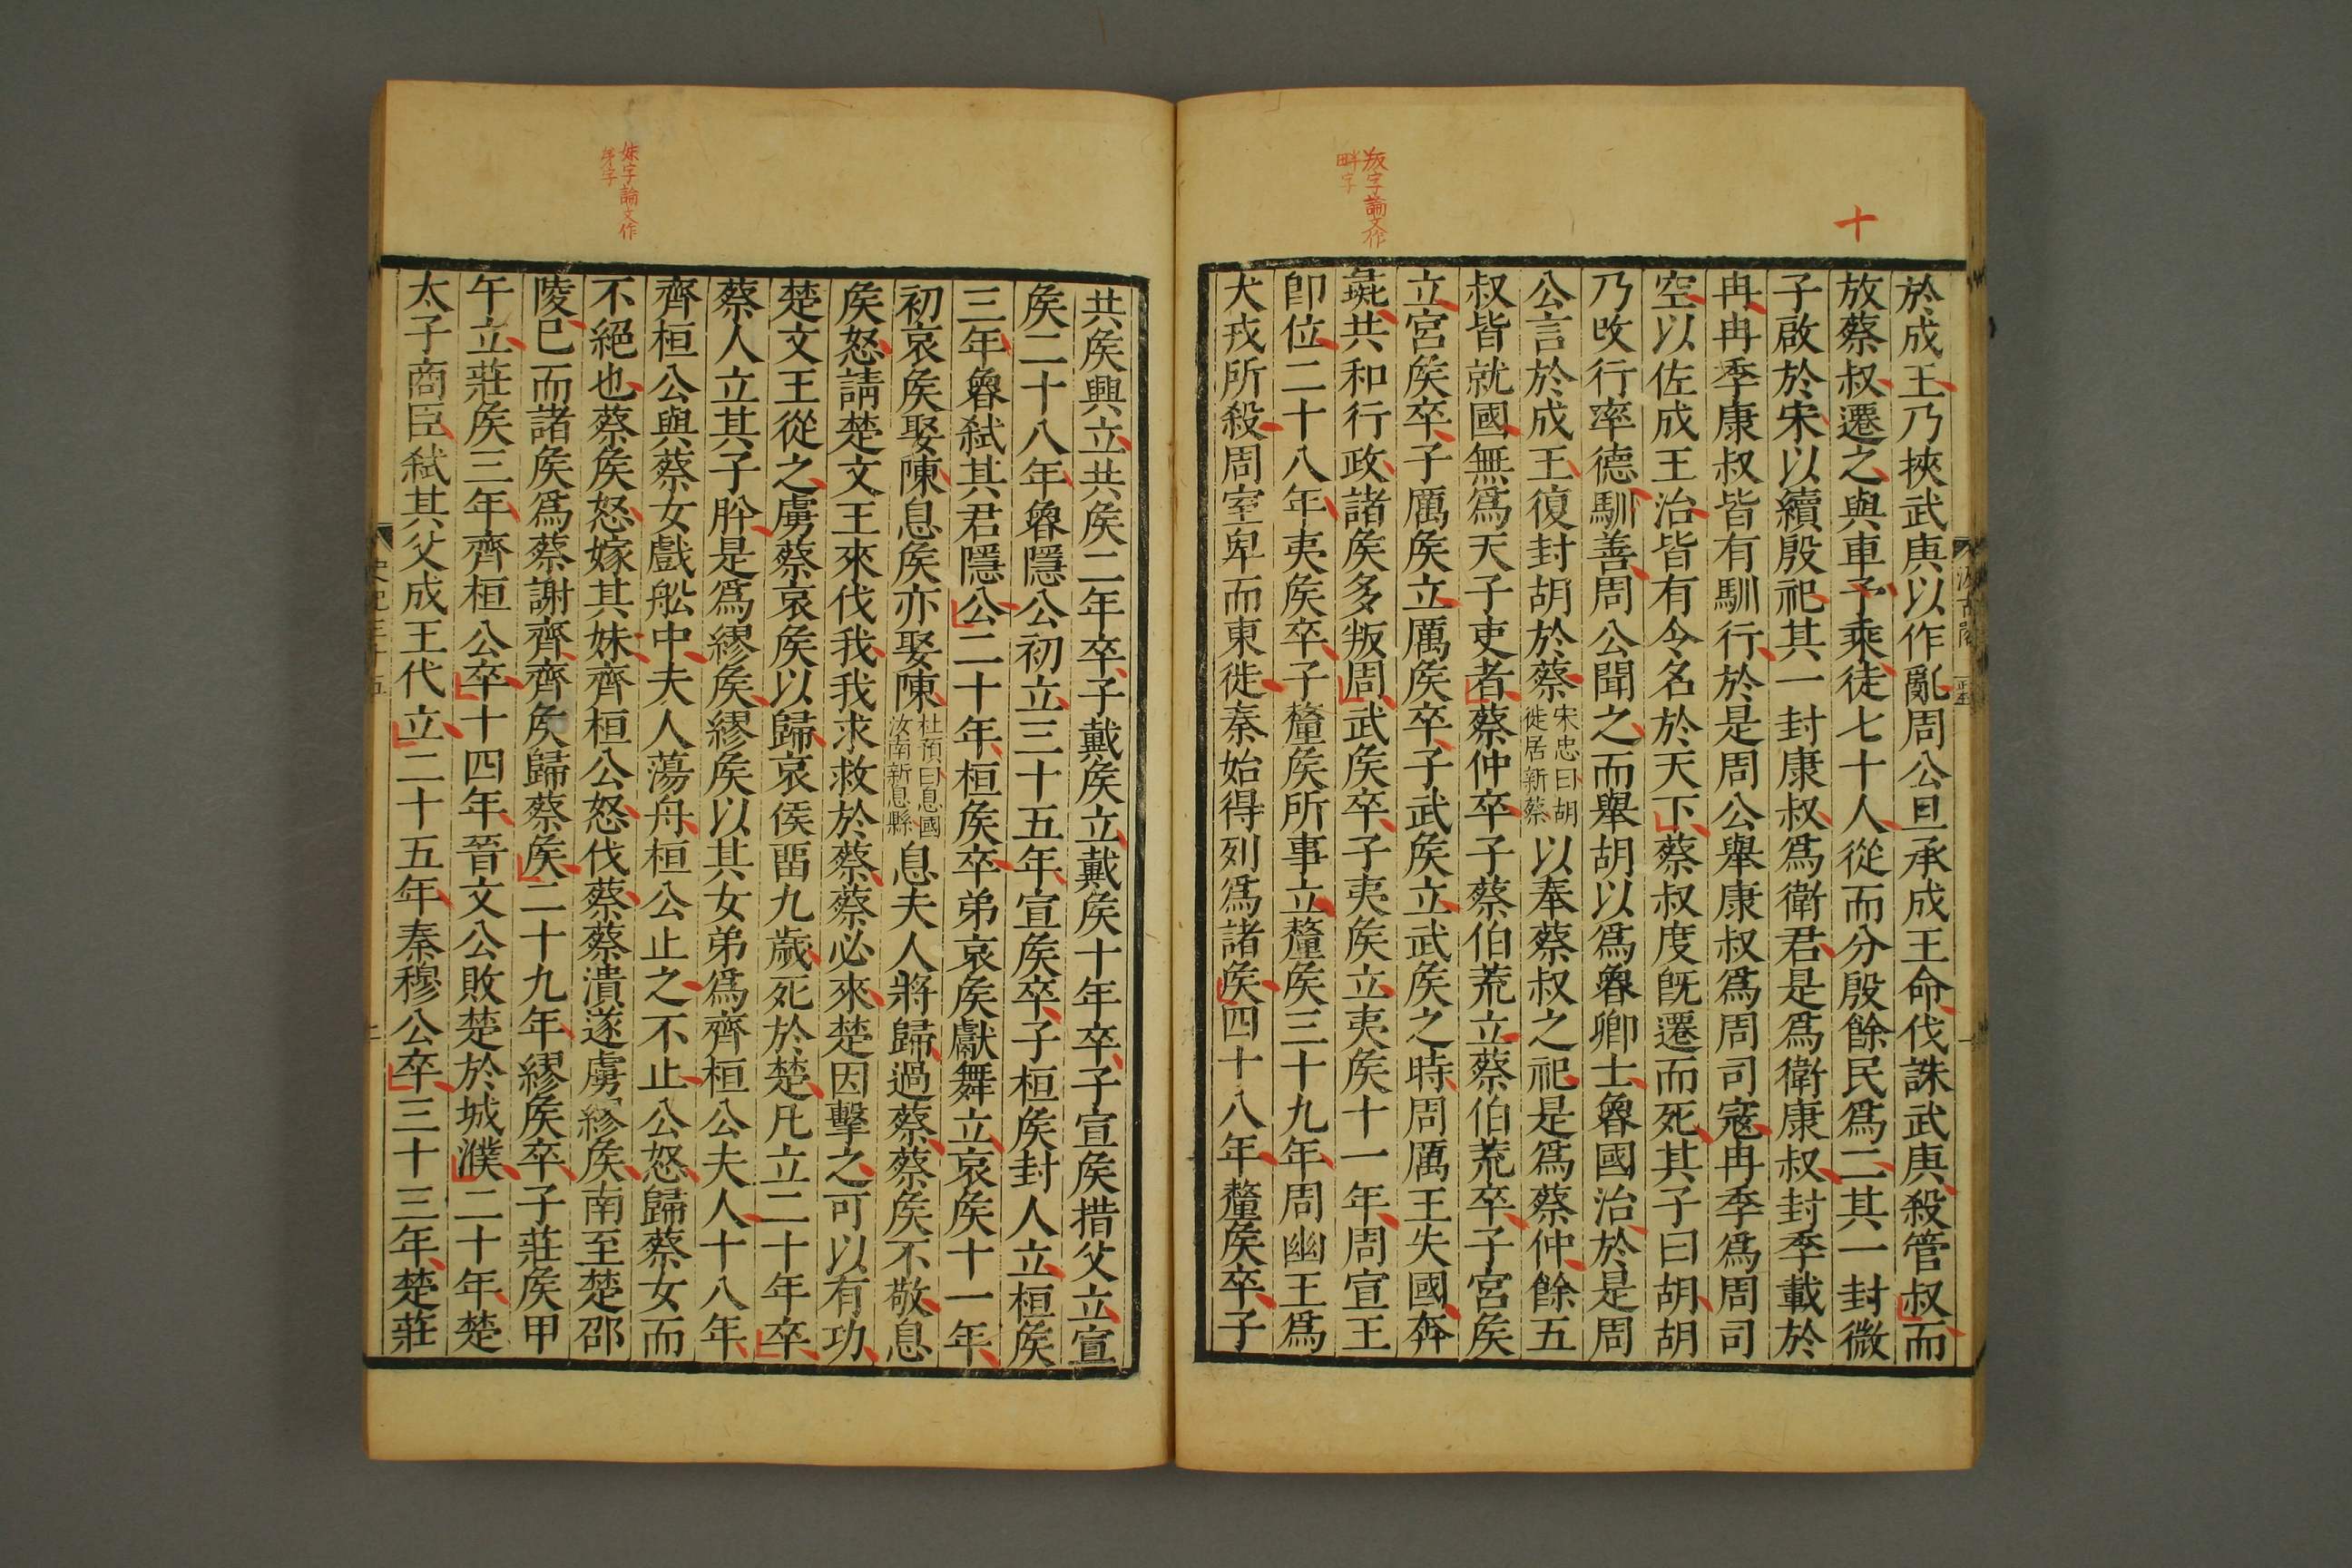 十
叛字論文作
畔字
於成王乃挾武庚以作亂周公旦承成王命伐誅武庚殺管叔而
放蔡叔遷之與車予乘徒七十人從而分殷餘民爲二其一封微
子啟於宋以續殷祀其一封康叔爲衛君是爲衛康叔封季載於
冉冉季康叔皆有馴行於是周公舉康叔爲周司寇冉季爲周司
空以佐成王治皆有令名於天下蔡叔度旣遷而死其子曰胡胡
乃改行率德馴善周公聞之而舉胡以爲魯卿士魯國治於是周
公言於成王復封胡於蔡宋忠曰胡徙居新蔡以奉蔡叔之祀是爲蔡仲餘五
叔皆就國無爲天子吏者蔡仲卒子蔡伯荒立蔡伯荒卒子宮矦
立宮矦卒子厲矦立厲矦卒子武矦立武矦之時周厲王失國奔
彘共和行政諸矦多叛周武矦卒子夷矦立夷矦十一年周宣王
卽位二十八年夷矦卒子釐矦所事立釐矦三十九年周幽王爲
犬戎所殺周室卑而東徙秦始得列爲諸矦四十八年釐矦卒子
妹字論文作
弟字
共矦興立共矦二年卒子戴矦立戴矦十年卒子宣矦措父立宣
矦二十八年魯隱公初立三十五年宣矦卒子桓矦封人立桓矦
三年魯弑其君隱公二十年桓矦卒弟哀矦獻舞立哀矦十一年
初哀矦娶陳息矦亦娶陳杜預曰息國汝南新息縣息夫人將歸過蔡蔡矦不敬息
矦怒請楚文王來伐我我求救於蔡蔡必來楚因擊之可以有功
楚文王從之虜蔡哀矦以歸哀侯畱九歲死於楚凡立二十年卒
蔡人立其子肸是爲繆矦繆矦以其女弟爲齊桓公夫人十八年
齊桓公與蔡女戲舩中夫人蕩舟桓公止之不止公怒歸蔡女而
不絕也蔡矦怒嫁其妹齊桓公怒伐蔡蔡潰遂虜繆矦南至楚邵
陵已而諸矦爲蔡謝齊齊矦歸蔡矦二十九年繆矦卒子莊矦甲
午立莊矦三年齊桓公卒十四年晉文公敗楚於城濮二十年楚
太子商臣弑其父成王代立二十五年秦穆公卒三十三年楚莊